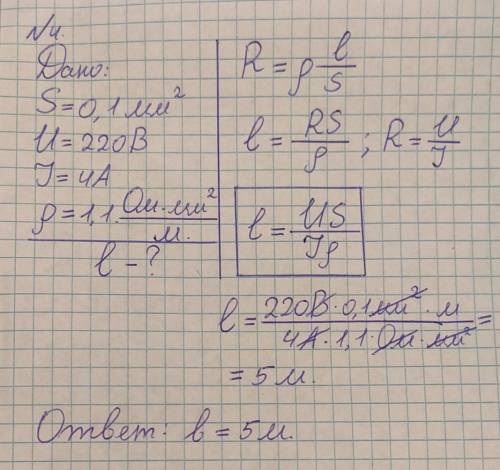 №4.
Дано:
S = 0,1 мм²
U = 220В
I = 4А
ρ = 1,1 · Ом·мм²/м.
l - ?
R = ρ l/S
l = RS/ρ ; R = U/I
l = US/Iρ
l = 220В · 0,1мм² · м / 4А · 1,1 · Ом · мм² =
= 5 м.
Ответ: l = 5 м.